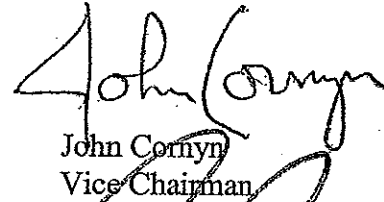 John Cornyn
John Cornyn
Vice Chairman